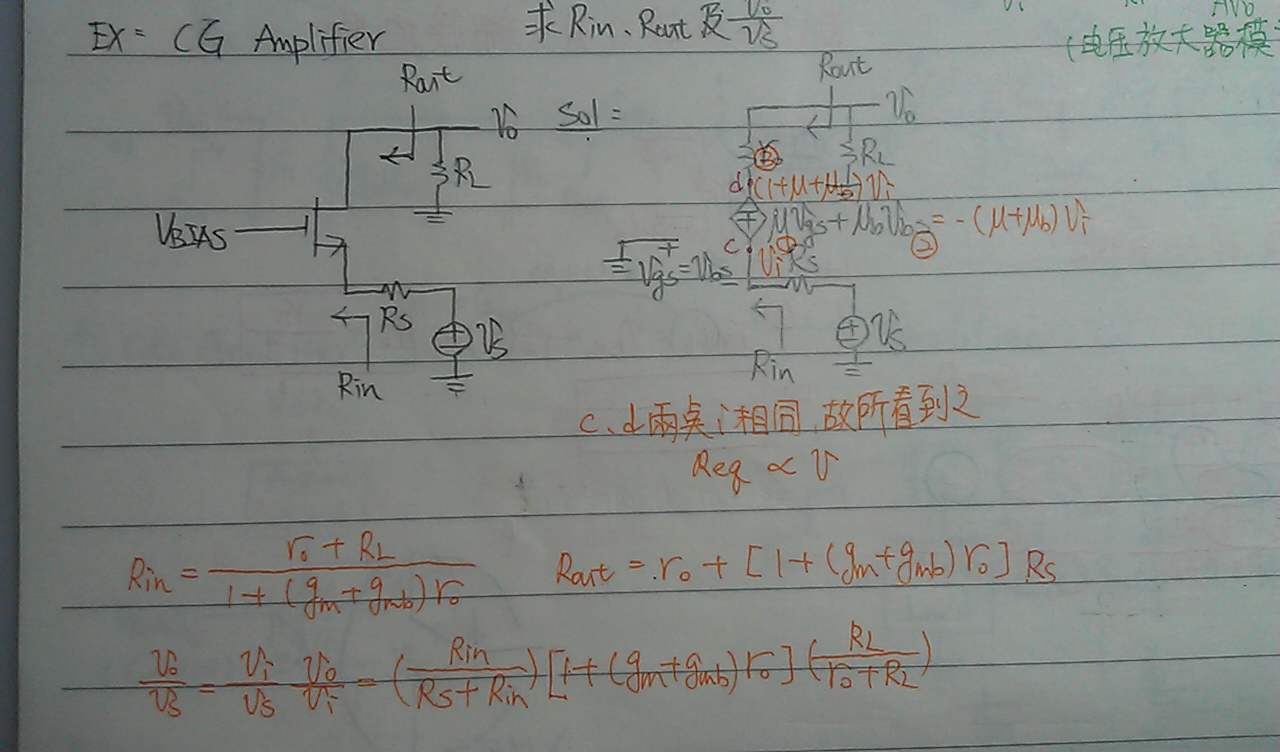 EX = CG Amplifier
求 Rin、Rout 及 Vo/Vs
(电压放大器模
Rout
Vo
RL
VBIAS
Rs
Vs
Rin
Sol =
Rout
Vo
RL
d (1+μ+μb)Vi
μVgs+μbVbs = -(μ+μb)Vi
②
c
①
Vgs=Vbs
Vi
Rs
Vs
Rin
c、d兩桌i相同,故所看到之
Req ∝ V
Rin = (ro + RL) / (1 + (gm+gmb)ro)
Rout = ro + [1+(gm+gmb)ro] Rs
Vo/Vs = Vi/Vs Vo/Vi = (Rin/(Rs+Rin)) [1+(gm+gmb)ro] (RL/(ro+RL))